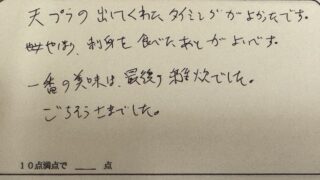 天プラの出してくれたタイミングがよかったです。
やはり、刺身を食べたあとがよいです。
一番の美味は、最後の雑炊でした。
ごちそうさまでした。
10点満点で ___ 点